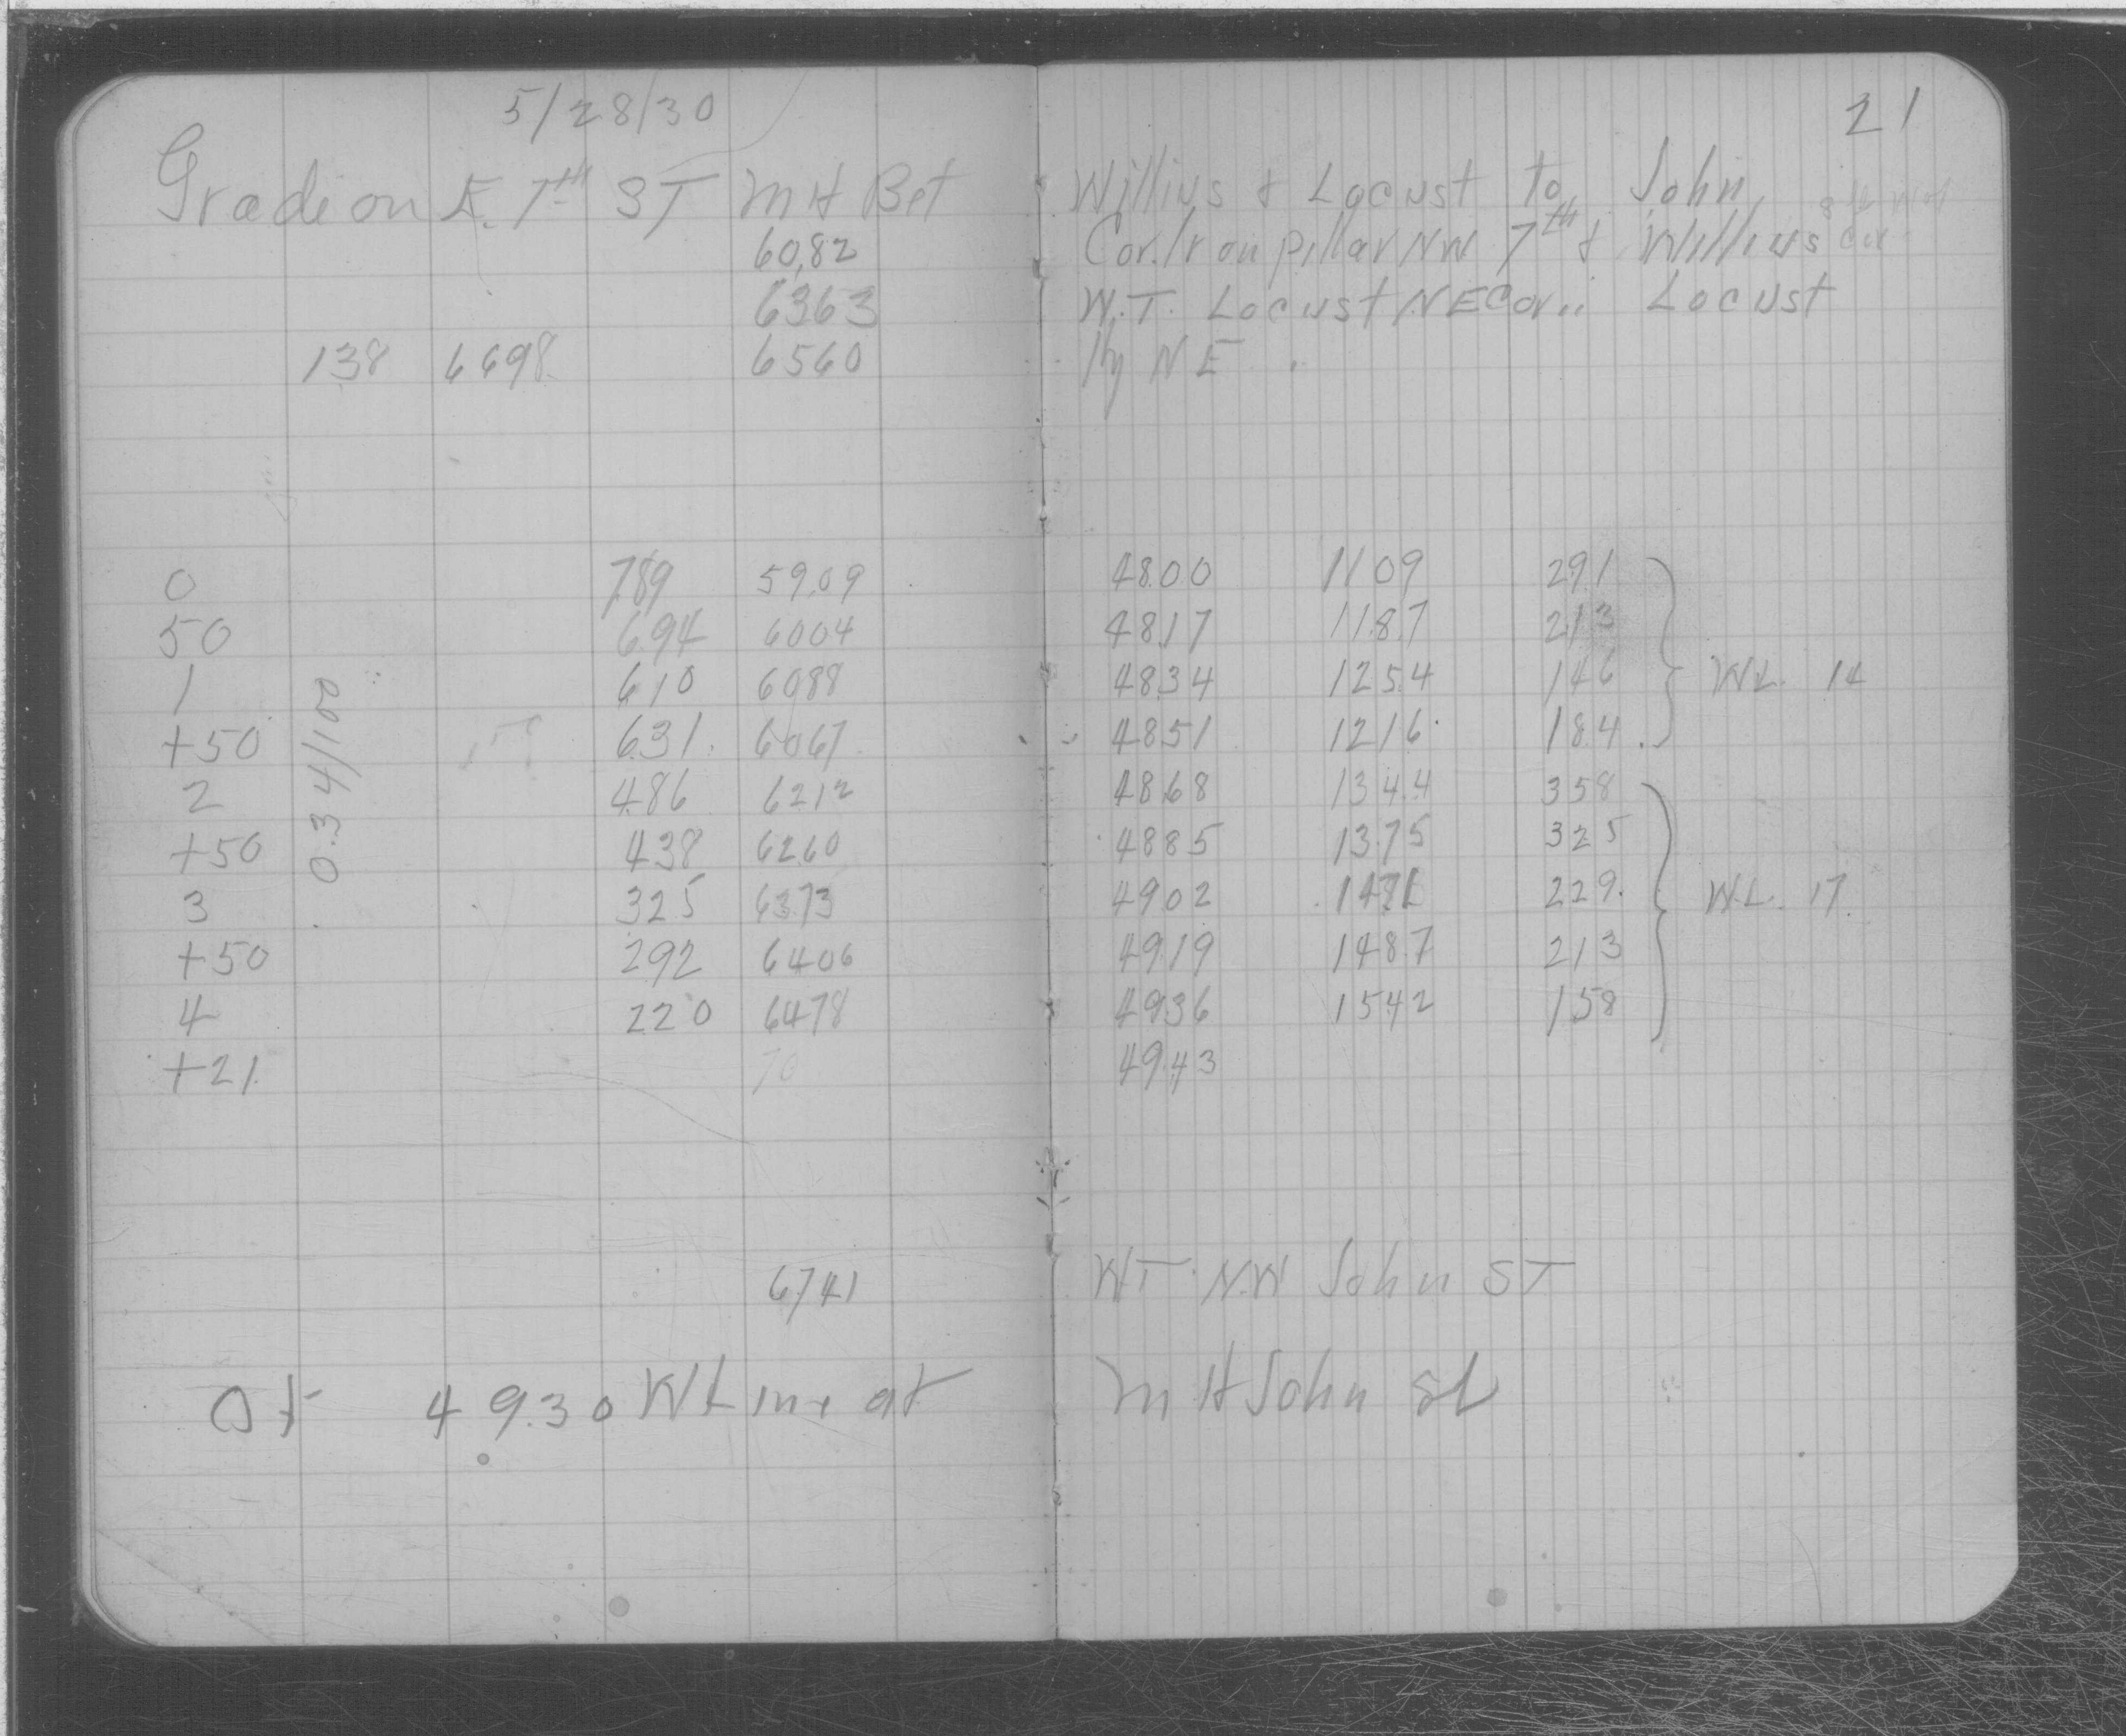 5/28/30 21
Grade on E. 7th ST MH Bet Willius & Locust to John
60.82 Cor. Ir on pillar NW 7th & Willius cor
6363 W.T. Locust NE Cor. Locust
138 6698 6560 Hy NE
0 789 59.09 48.00 1109 291
50 694 6004 4817 1187 213
1 610 6088 4834 1254 146 WL. 14
+50 631 6067 4851 1216 184
2 486 6212 4868 1344 358
+50 438 6260 4885 1375 325
0.34/100
3 325 6373 4902 1471 229 WL. 17
+50 292 6406 4919 1487 213
4 220 6478 4936 1542 158
+21 70 4943
6741 WT NW John ST
49.30 WL at MH John St